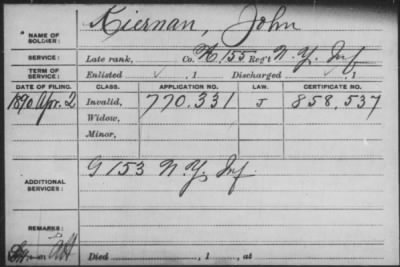 NAME OF SOLDIER: Kiernan, John
SERVICE: Late rank, Co. K 155 Reg't N.Y. Inf
TERM OF SERVICE: Enlisted , 1 Discharged , 1
DATE OF FILING. CLASS. APPLICATION NO. LAW. CERTIFICATE NO.
1890 Apr. 2 Invalid, 770.331 J 858.537
Widow,
Minor,
ADDITIONAL SERVICES: G 153 N.Y. Inf.
REMARKS:
Died , 1 , at